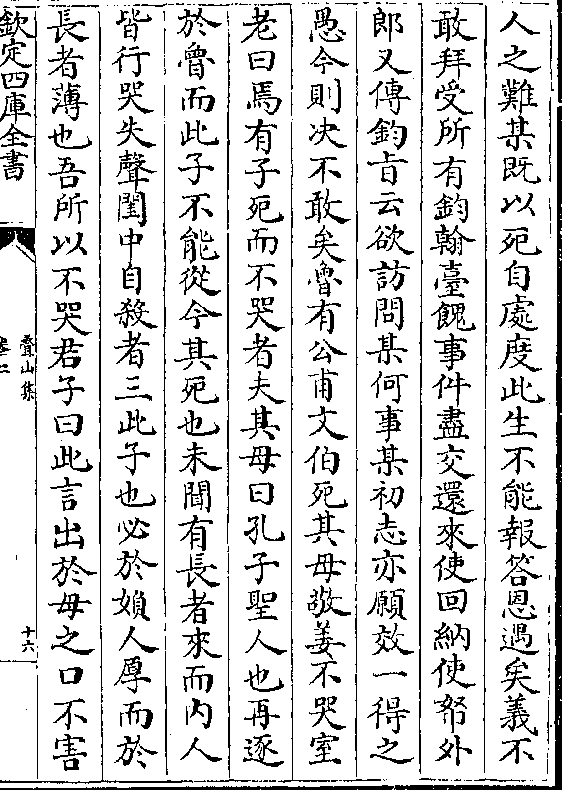 人之難某既以死自處度此生不能報答恩遇矣義不
敢拜受所有鈞翰臺餽事件盡交還來使回納使帑外
郎又傳鈞㫖云欲訪問某何事某初志亦願效一得之
愚今則决不敢矣魯有公甫文伯死其母敬姜不哭室
老曰焉有子死而不哭者夫其母曰孔子聖人也再逐
於魯而此子不能從今其死也未聞有長者來而内人
皆行哭失聲閨中自殺者三此子也必於婦人厚而於
長者薄也吾所以不哭君子曰此言出於母之口不害
欽定四庫全書
疊山集
卷二
十六